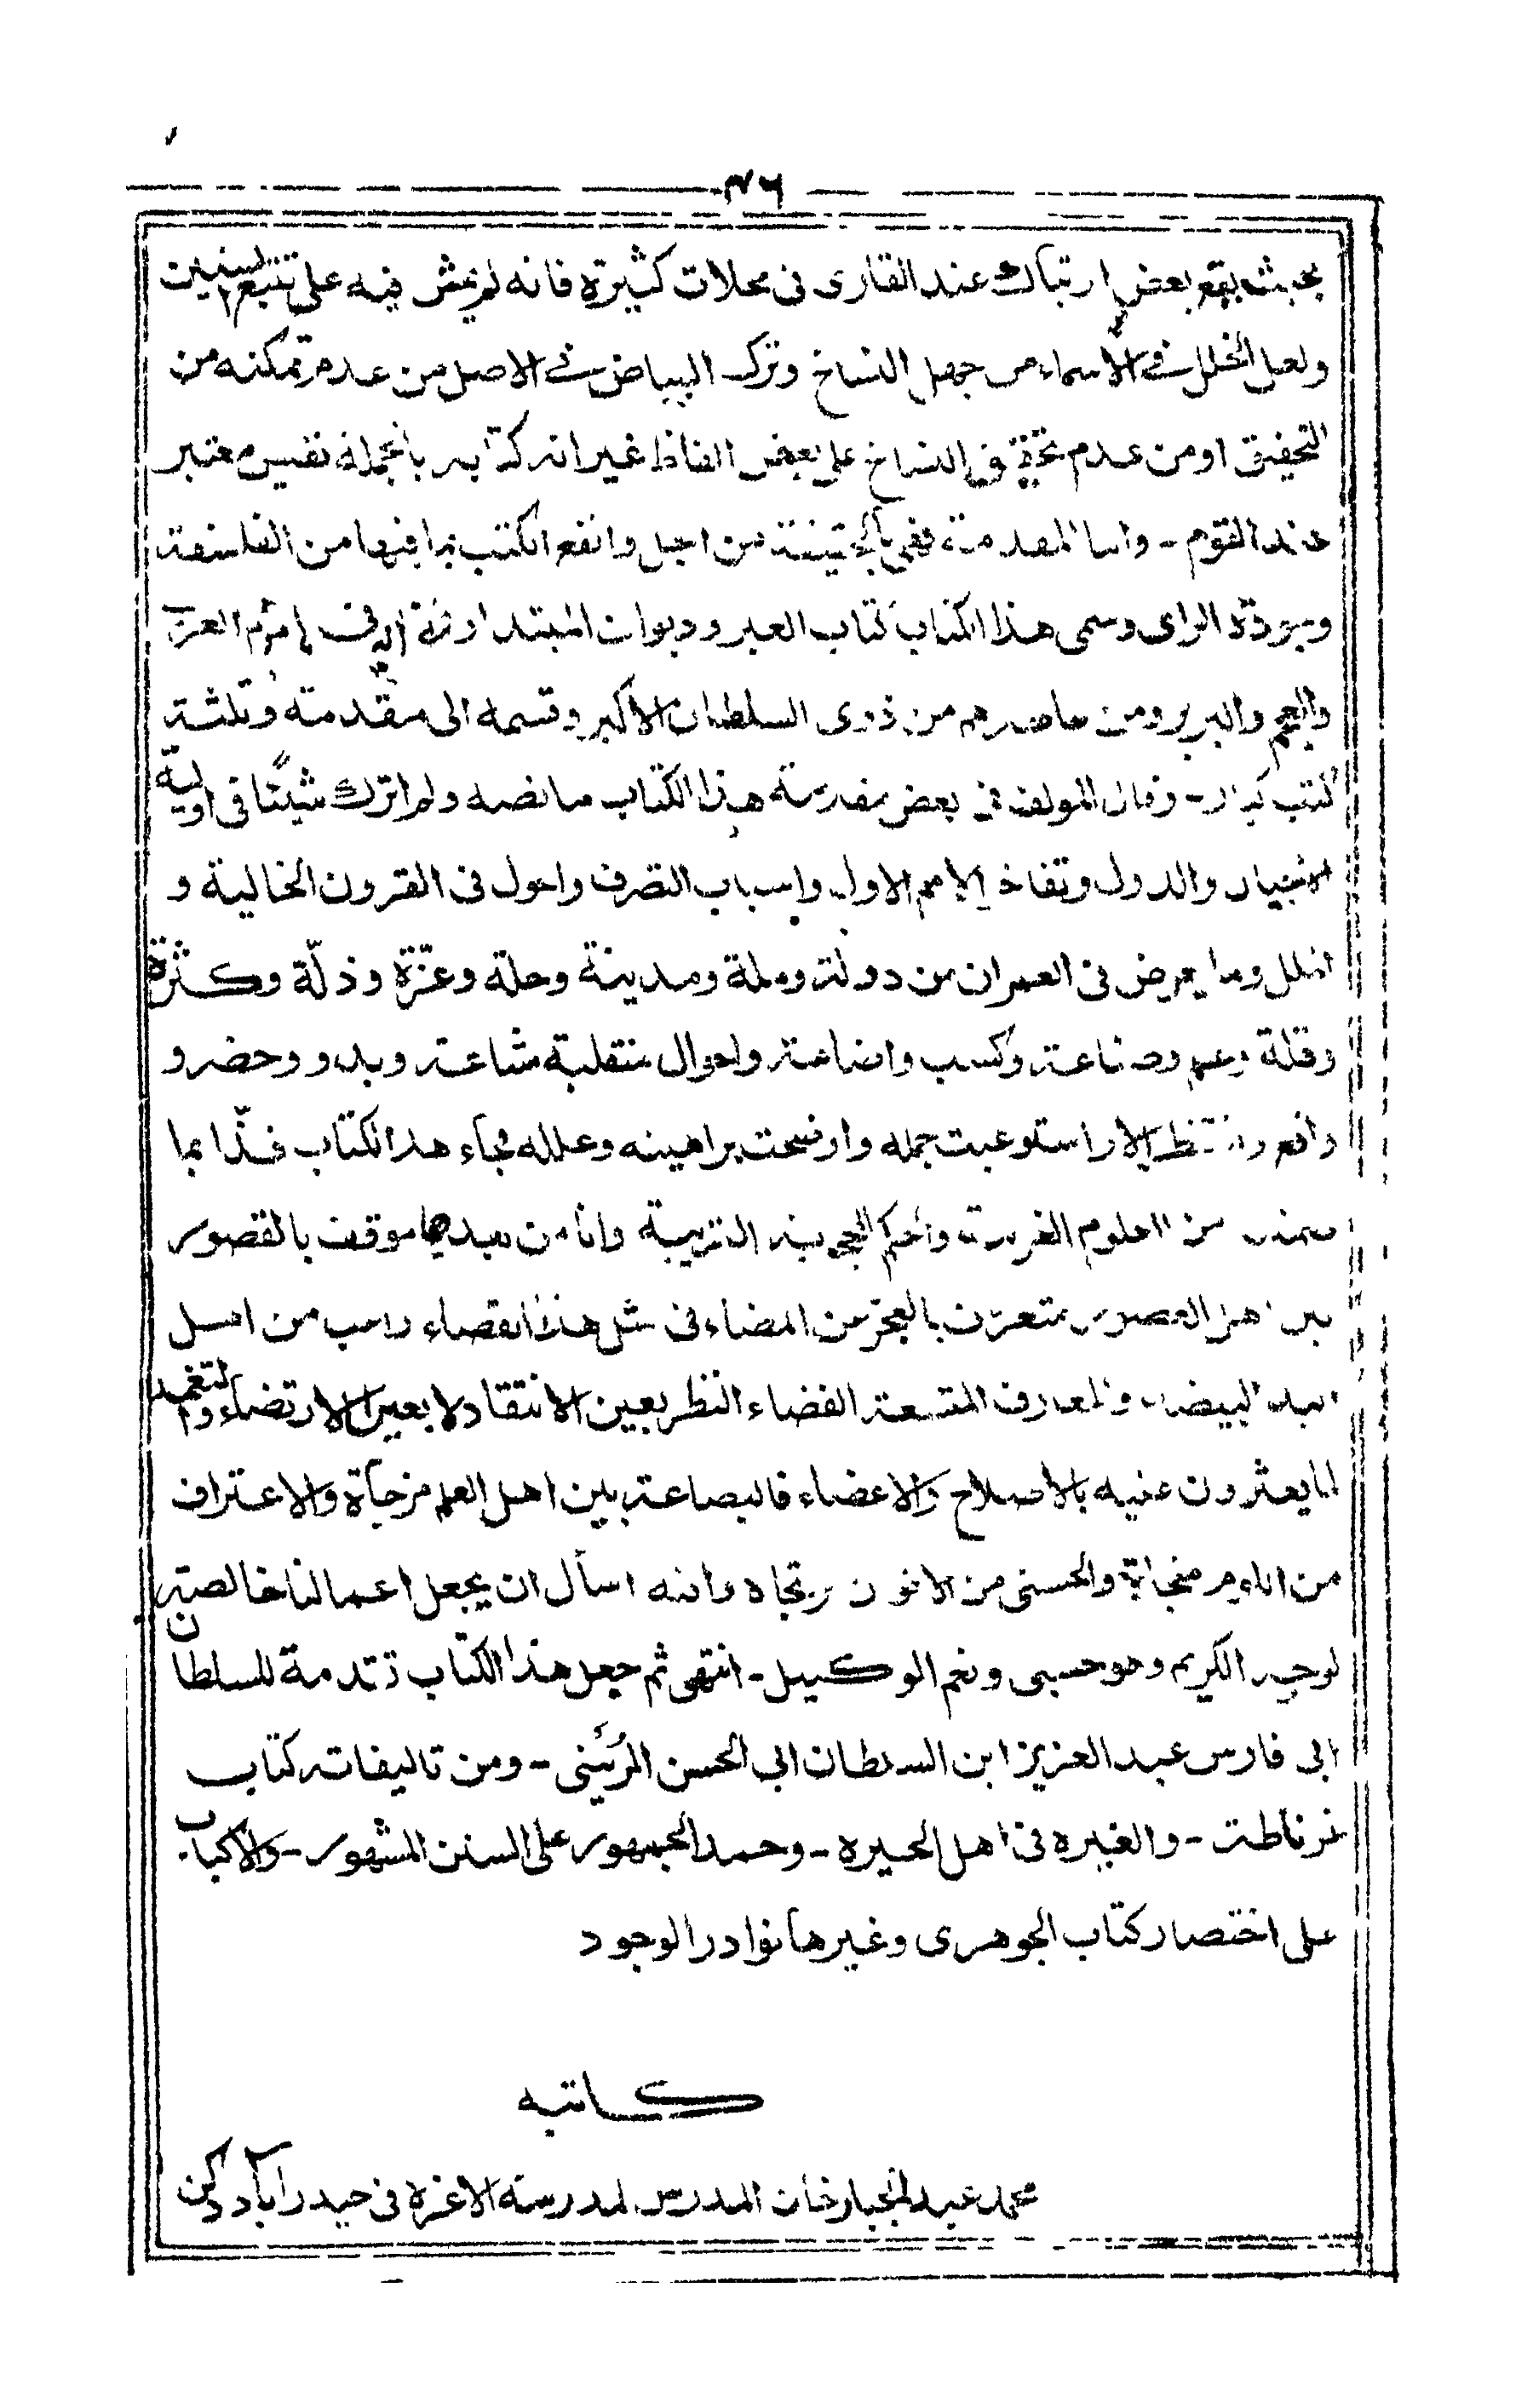 ٣٦
بحيث يقع بعض ارتباك عند القارى فى محلات كثيرة فانه لم يمش فيه على تتبع السنين
ولعل الخلل فى الاسماء من جهل النساخ وترك البياض فى الاصل من عدم تمكنه من
التحقيق او من عدم تحقيق النساخ على بعض الفاظ غير انه كتابه بالجملة نفيس معتبر
عند القوم - واما المقدمة فهى بالحقيقة من اجل وانفع الكتب بما فيها من الفلسفة
وجودة الراى وسمى هذا الكتاب كتاب العبر وديوان المبتدا فى ايام العرب
والعجم والبربر ومن عاصرهم من ذوى السلطان الاكبر وقسمه الى مقدمة وثلثة
كتب كبار - وقال المولف فى بعض مقدمته هذا الكتاب ما نصه ولم اترك شيئا فى اولية
الاجيال والدول وتفاخ الامم الاول واسباب التصرف واحول فى القرون الخالية و
الملل وما يعرض فى العمران من دولة وملة ومدينة وحلة وعزة وذلّة وكثرة
وقلة وعلم وصناعة وكسب واضاعة واحوال متقلبة مشاعة وبدو وحضر و
واقع ومنتظر الا استوعبت جمله واوضحت براهينه وعلله فجاء هذا الكتاب فذّا بما
ضمنته من العلوم الغريبة والحكم المحجوبة القريبة وانا من بعدها موقن بالقصور
بين اهل العصور معترف بالعجز من المضاء فى مثل هذا القضاء راغب من اهل
اليد البيضاء والمعارف المتسعة الفضاء النظر بعين الانتقاد لا بعين الارتضاء والتغمد
لما يعثرون عليه بالاصلاح والاغضاء فالبضاعة بين اهل العلم مزجاة والاعتراف
من اللوم منجاة والحسنى من الاخوان مرتجاة والله اسأل ان يجعل اعمالنا خالصة
لوجهه الكريم وهو حسبى ونعم الوكيل - انتهى ثم جعل هذا الكتاب تقدمة للسلطان
ابى فارس عبد العزيز ابن السلطان ابى الحسن المرينى - ومن تاليفاته كتاب
غرناطة - والغيره فى اهل الحيره - وحمد الجمهور على السنن المشهور - والاكباب
على اختصار كتاب الجوهرى وغيرها نوادر الوجود
كاتبه
محمد عبد الجبار خان المدرس لمدرسة الاعزه فى حيدرآباد دكن